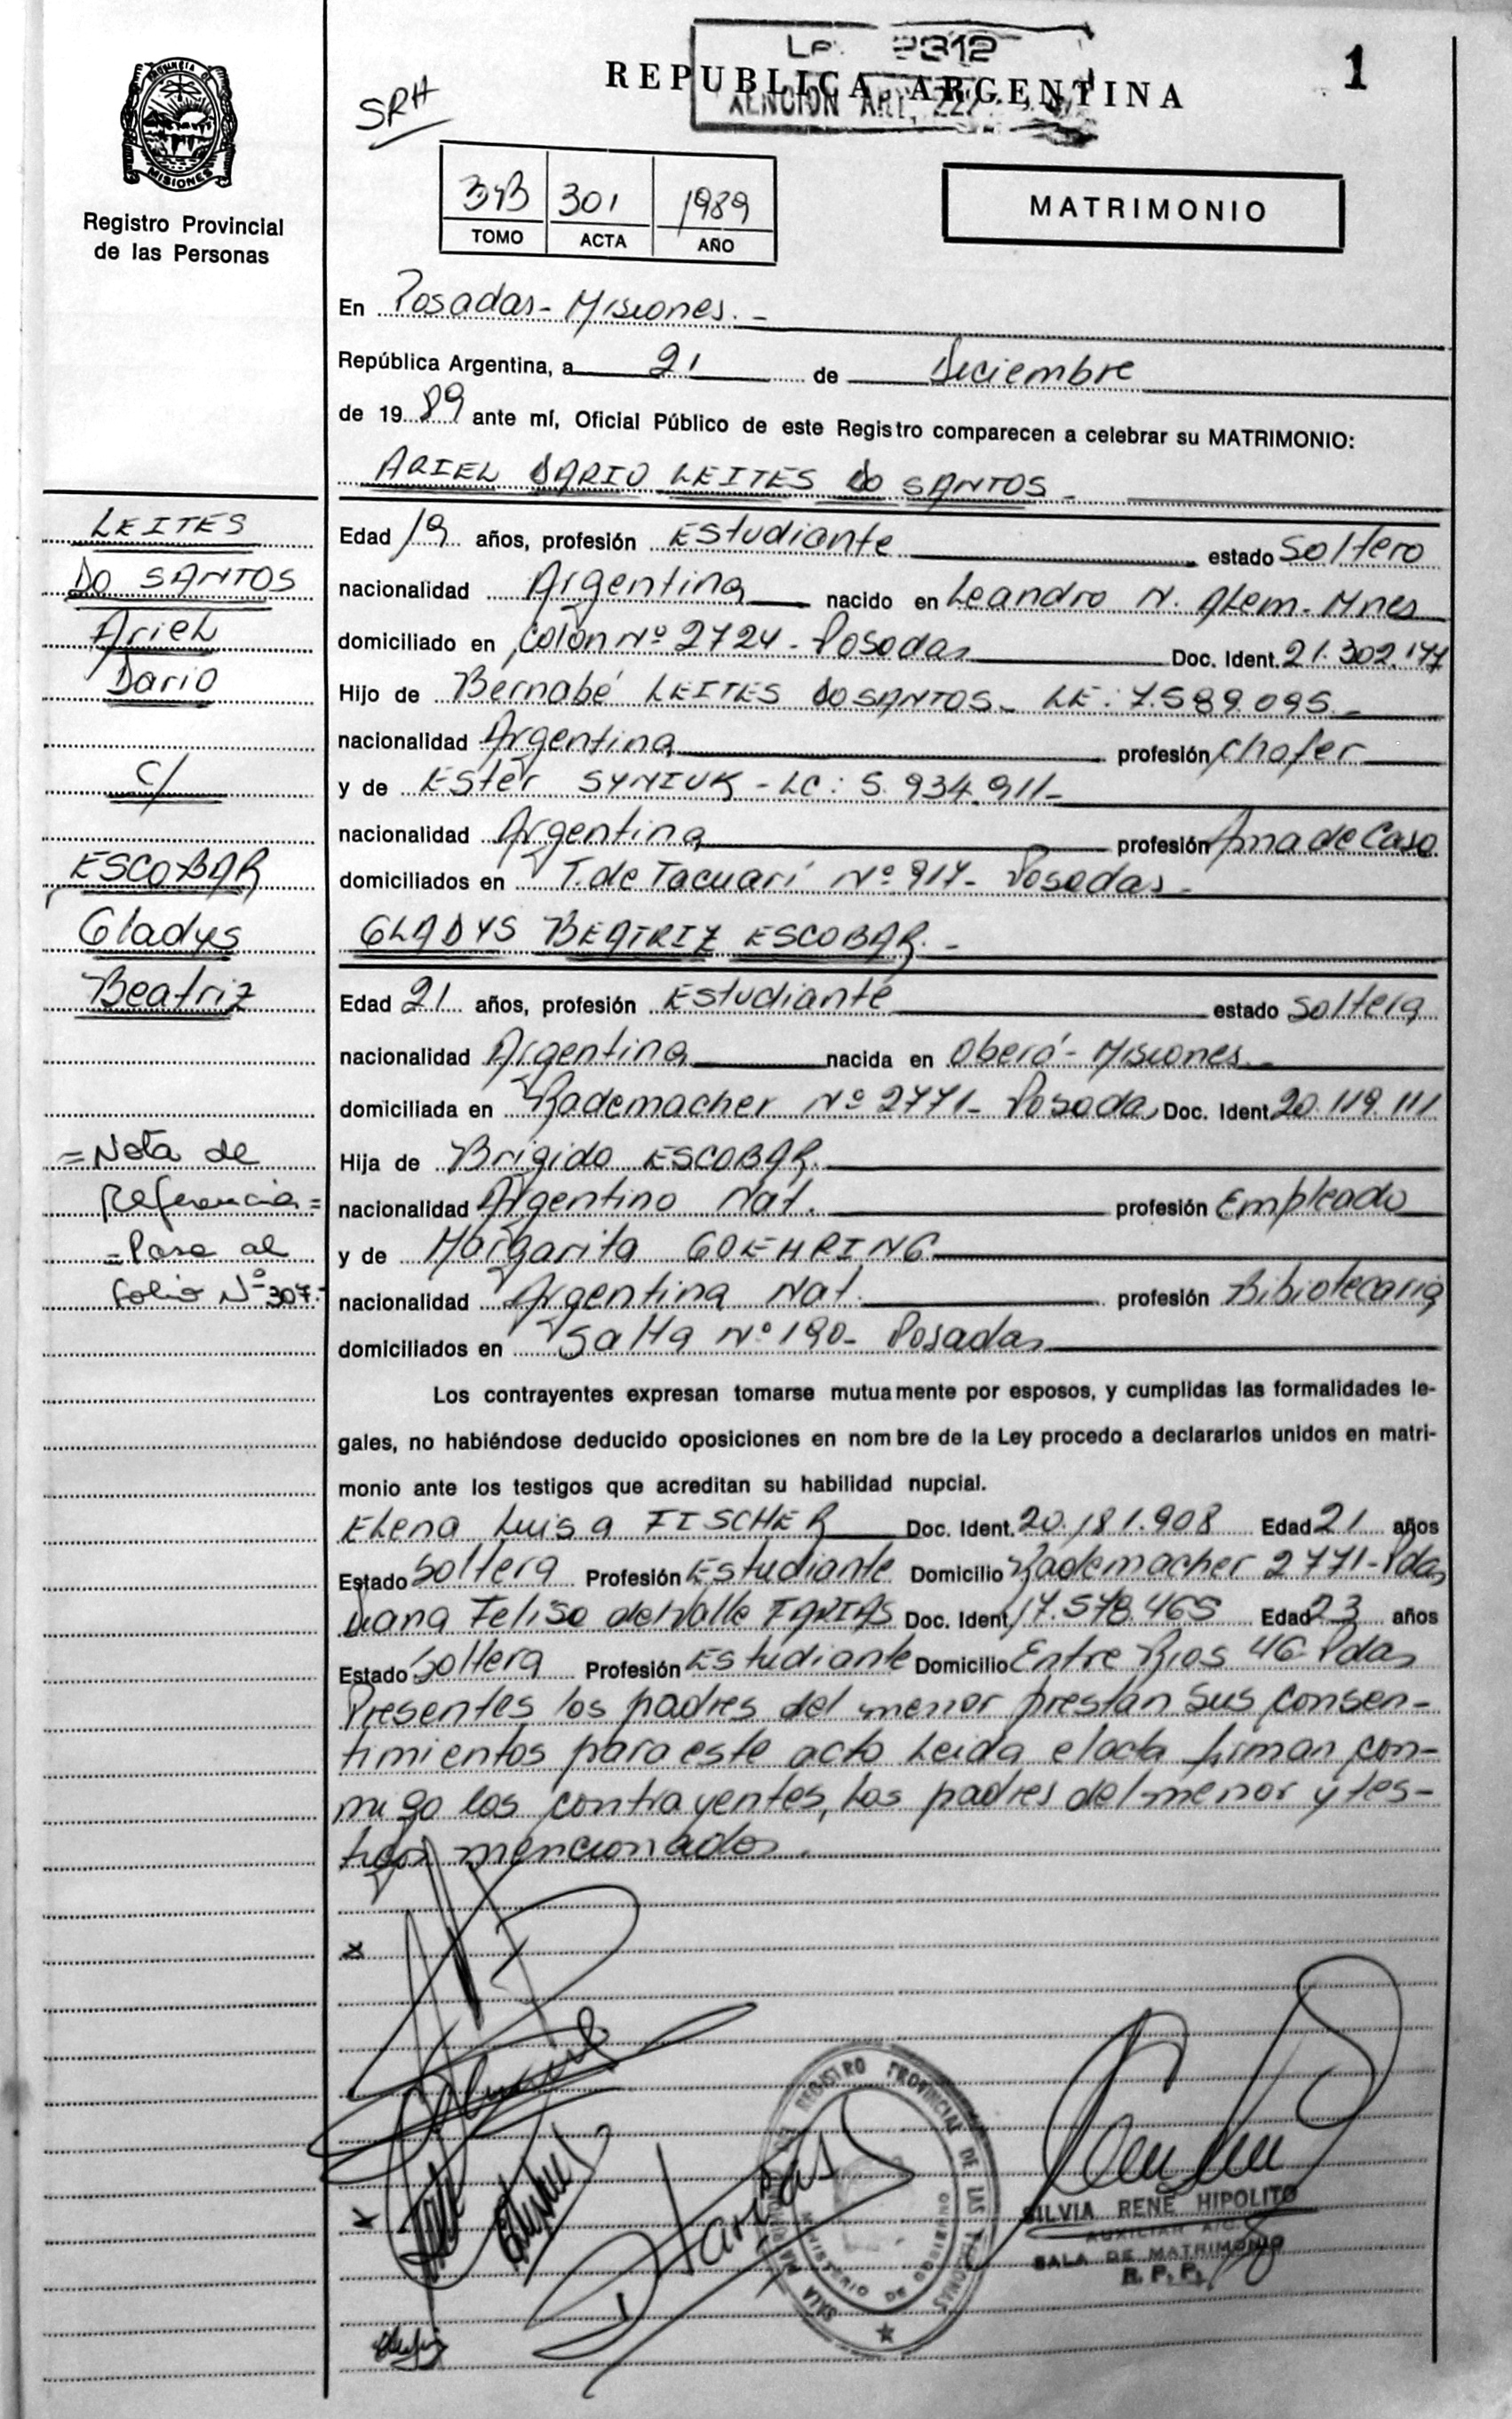 PROVINCIA DE
MISIONES
Registro Provincial
de las Personas
SRH
REPUBLICA ARGENTINA
2312
ART. 227
1
301 1989
TOMO ACTA AÑO
MATRIMONIO
En Posadas - Misiones. -
República Argentina, a 21 de Diciembre
de 19 89 ante mí, Oficial Público de este Registro comparecen a celebrar su MATRIMONIO:
ARIEL DARIO LEITES DO SANTOS -
Edad 19 años, profesión Estudiante estado Soltero
nacionalidad Argentina nacido en Leandro N. Alem - Mnes
domiciliado en Colón Nº 2724 - Posadas Doc. Ident. 21.302.177
Hijo de Bernabé LEITES DO SANTOS - LE: 7.589.095 -
nacionalidad Argentina profesión chofer
y de Ester SYNIUK - LC: 5.934.911 -
nacionalidad Argentina profesión Ama de Casa
domiciliados en T. de Tacuarí Nº 917 - Posadas -
GLADYS BEATRIZ ESCOBAR. -
Edad 21 años, profesión Estudiante estado Soltera
nacionalidad Argentina nacida en Oberá - Misiones
domiciliada en Rademacher Nº 2771 - Posadas Doc. Ident. 20.119.111
Hija de Brigido ESCOBAR.
nacionalidad Argentino Nat. profesión Empleado
y de Margarita GOEHRING
nacionalidad Argentina Nat. profesión Bibiotecaria
domiciliados en Salta Nº 190 - Posadas
LEITES
DO SANTOS
Ariel
Dario
c/
ESCOBAR
Gladys
Beatriz
= Nota de
Referencia =
- Pase al
folio Nº 307.-
Los contrayentes expresan tomarse mutuamente por esposos, y cumplidas las formalidades le-
gales, no habiéndose deducido oposiciones en nombre de la Ley procedo a declararlos unidos en matri-
monio ante los testigos que acreditan su habilidad nupcial.
Elena Luisa FISCHER Doc. Ident. 20.181.908 Edad 21 años
Estado Soltera Profesión Estudiante Domicilio Rademacher 2771 - Pdas
Diana Felisa del Valle FARIAS Doc. Ident. 17.578.465 Edad 23 años
Estado Soltera Profesión Estudiante Domicilio Entre Rios 46 Pdas
Presentes los padres del menor prestan sus consen-
timientos para este acto Leida el acta firman con-
migo los contrayentes, los padres del menor y tes-
tigos mencionados.
x
x
Farias
REGISTRO PROVINCIAL DE LAS PERSONAS
MINISTERIO DE GOBIERNO
SALA MATRIMONIOS
SILVIA RENE HIPOLITO
AUXILIAR A/C.
SALA DE MATRIMONIO
R. P. P.